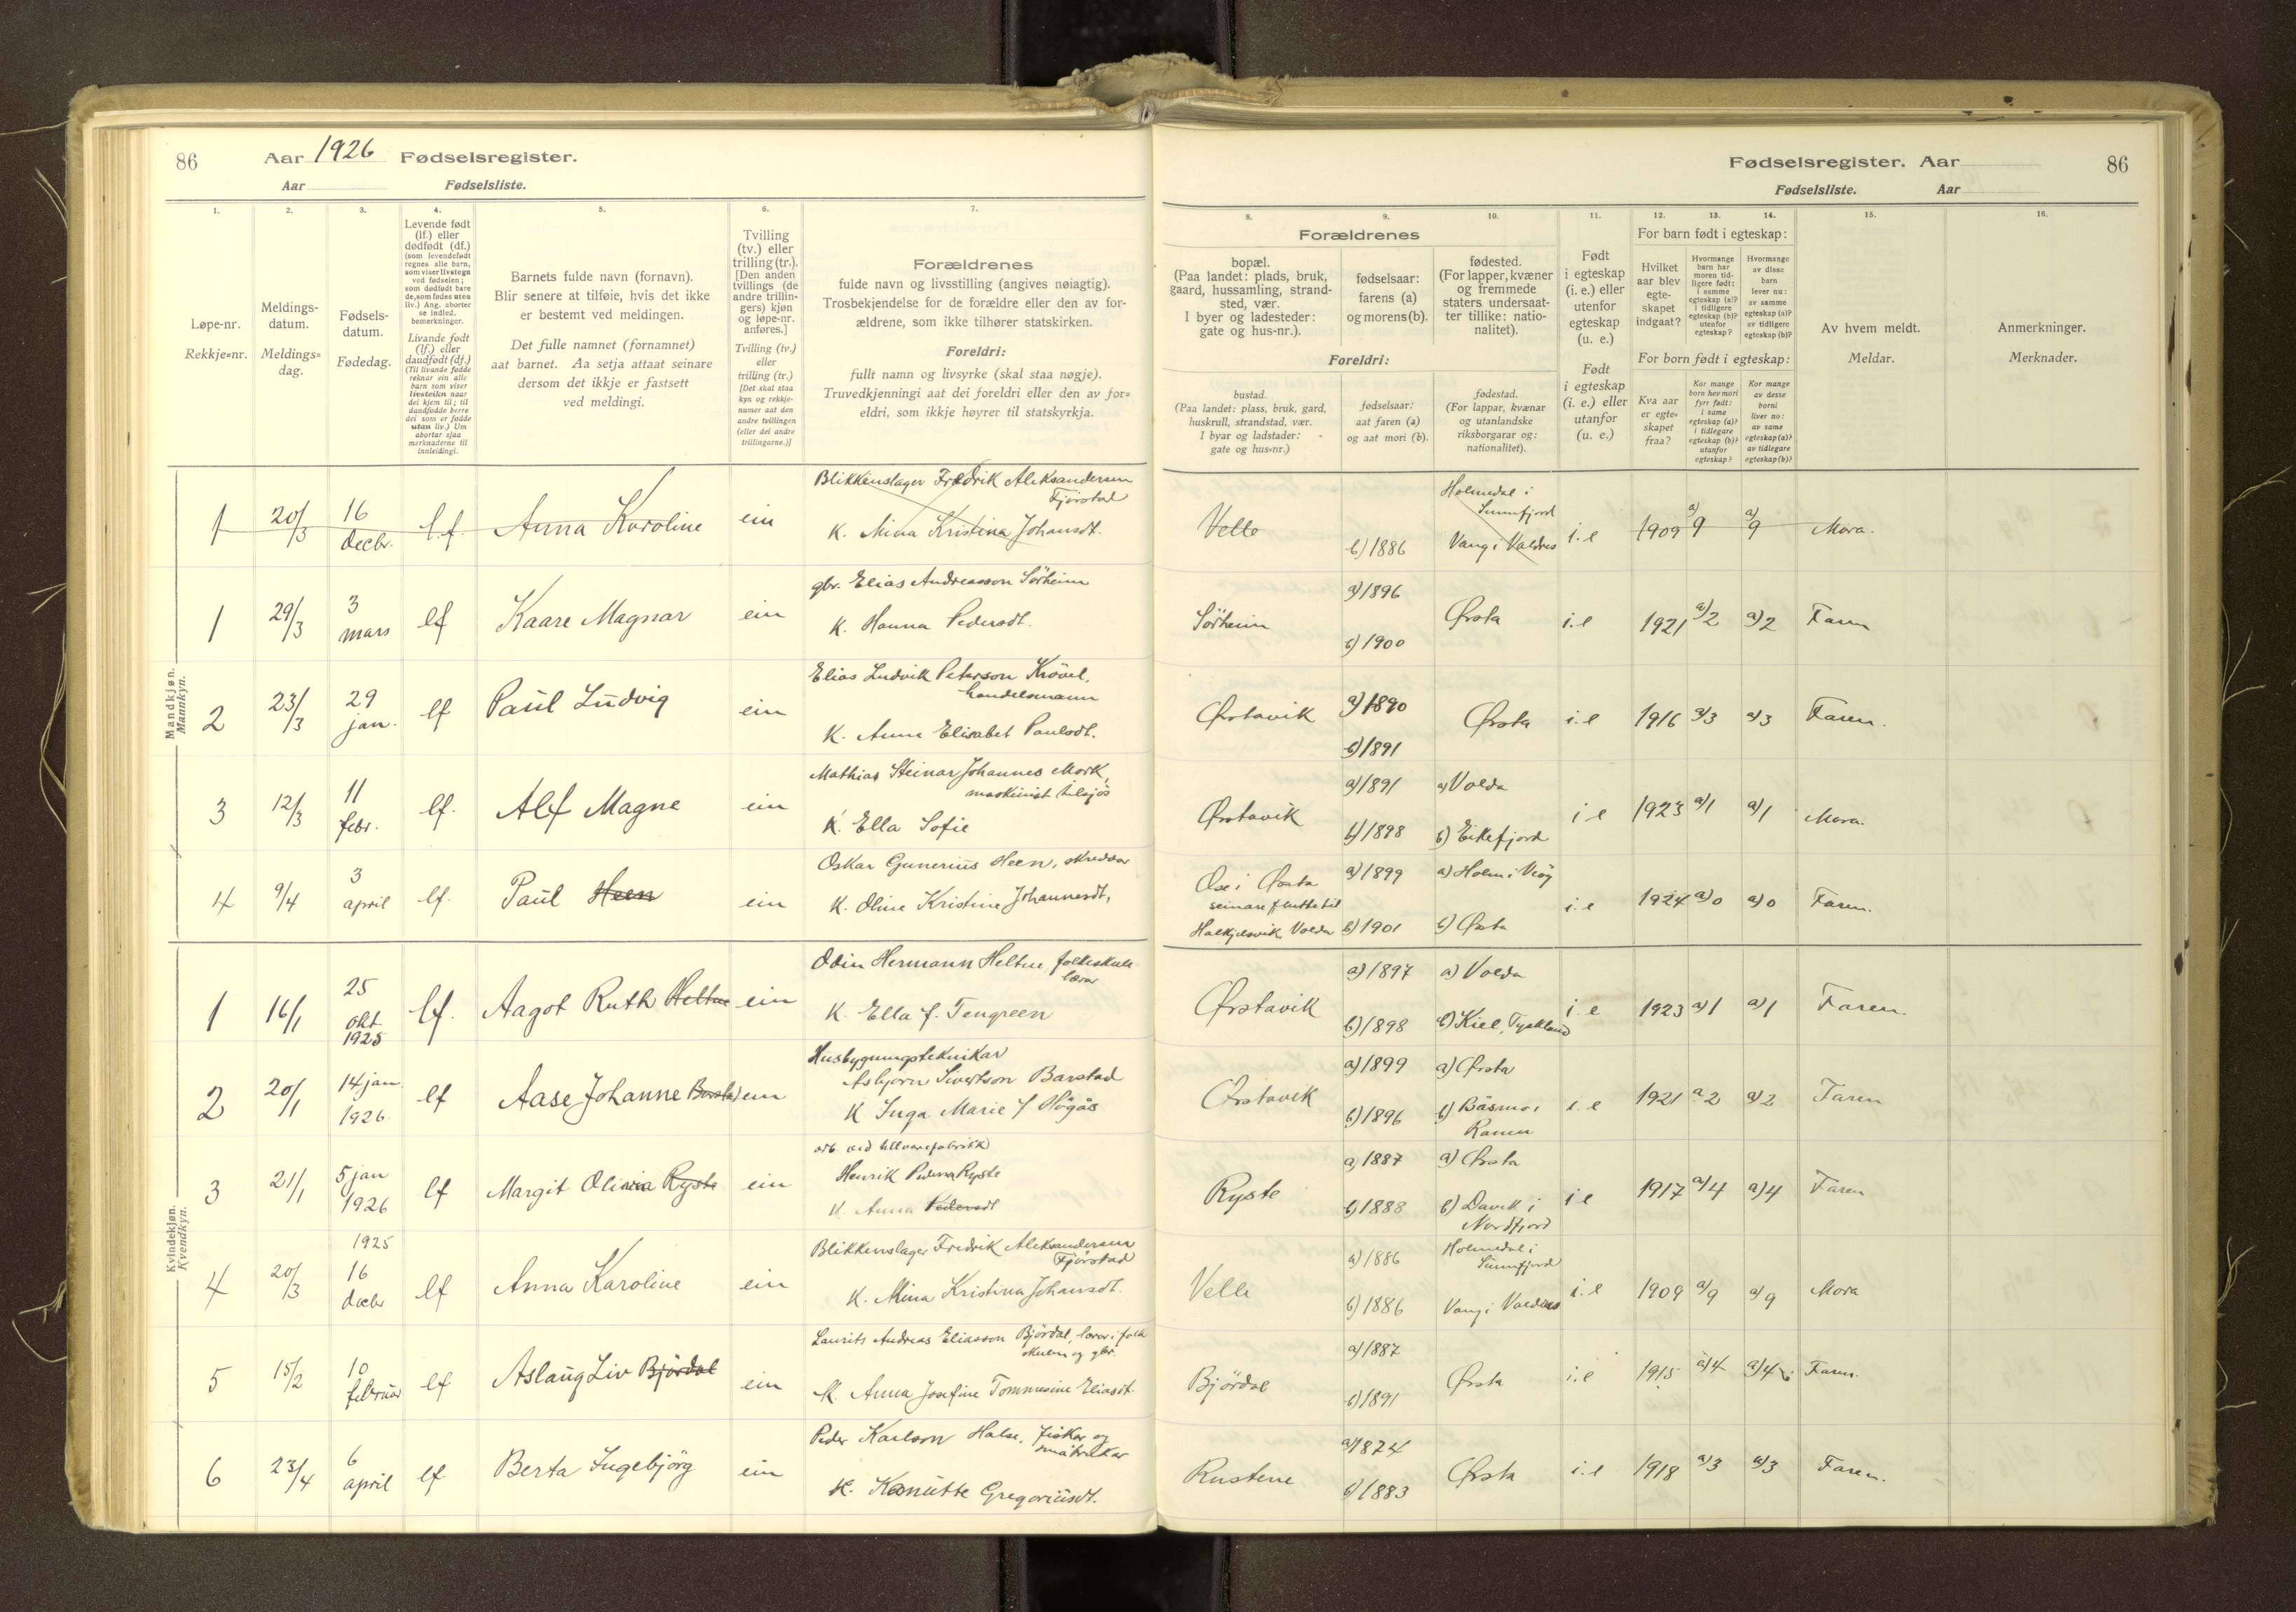 86 Aar 1926 Fødselsregister.
Aar Fødselsliste.
1.
Løpe-nr.
Rekkje=nr.
2.
Meldings-
datum.
Meldings=
dag.
3.
Fødsels-
datum.
Fødedag.
4.
Levende født
(lf.) eller
dødfødt (df.)
(som levendefødt
regnes alle barn,
som viser livstegn
ved fødselen;
som dødfødt bare
de, som fødes uten
liv.) Ang. aborter
se indled.
bemerkninger.
Livande født
(lf.) eller
daudfødt (df.)
(Til livande fødde
reknar ein alle
barn som viser
livsteikn naar
dei kjem til; til
daudfødde berre
dei som er fødde
utan liv.) Um
abortar sjaa
merknaderne til
innleidingi.
5.
Barnets fulde navn (fornavn).
Blir senere at tilføie, hvis det ikke
er bestemt ved meldingen.
Det fulle namnet (fornamnet)
aat barnet. Aa setja attaat seinare
dersom det ikkje er fastsett
ved meldingi.
6.
Tvilling
(tv.) eller
trilling (tr.).
[Den anden
tvillings (de
andre trillin-
gers) kjøn
og løpe-nr.
anføres.]
Tvilling (tv.)
eller
trilling (tr.)
[Det skal staa
kyn og rekkje-
numer aat den
andre tvillingen
(eller dei andre
trillingarne.)]
7.
Forældrenes
fulde navn og livsstilling (angives nøiagtig).
Trosbekjendelse for de forældre eller den av for-
ældrene, som ikke tilhører statskirken.
Foreldri:
fullt namn og livsyrke (skal staa nøgje).
Truvedkjenningi aat dei foreldri eller den av for=
eldri, som ikkje høyrer til statskyrkja.
Mandkjøn.
Mannkyn.
1 20/3 16 decbr. l.f. Anna Karoline ein
Blikkenslager Fredrik Aleksandersen
Fjörstad
K. Mina Kristina Johansdt.
1 29/3 3 mars lf Kaare Magnar ein
gbr. Elias Andreasson Sörheim
K. Hanna Pedersdt.
2 23/3 29 jan. lf Paul Ludvig ein
Elias Ludvik Peterson Krövel,
handelsmann
K. Anna Elisabet Paulsdt.
3 12/3 11 febr. lf. Alf Magne ein
Mathias Steinar Johannes Mork,
maskinist tilsjös
K. Ella Sofie
4 9/4 3 april lf. Paul Heen ein
Oskar Gunerius Heen, skreddar
K. Oline Kristine Johannesdt,
Kvindekjøn.
Kvendkyn.
1 16/1 25 okt. 1925 lf. Aagot Ruth Heltne ein
Odin Hermann Heltne, folkeskule
lærar
K. Ella f. Tengreen
2 20/1 14 jan. 1926 lf Aase Johanne Barstad ein
Husbygningsteknikar
Asbjørn Sivertson Barstad
K Inga Marie f Högås
3 21/1 5 jan 1926 lf Margit Olivia Ryste ein
arb. ved ullvarefabrikk
Henrik Ryste
K. Anna Pedersdt
4 20/3 1925 16 decbr lf Anna Karoline ein
Blikkenslager Fredrik Aleksandersen
Fjörstad
K. Mina Kristina Johansdt.
5 15/2 10 februar lf Aslaug Liv Björdal ein
Laurits Andreas Eliasson Björdal, lærar i folk
skulen og gbr.
K. Anna Josefine Tommesine Eliasdt.
6 23/4 6 april lf. Berta Ingebjörg ein
Peder Karlson Halse, fiskar og
småbrukar
K. Kanutte Gregoriusdt.
Fødselsregister. Aar 86
Fødselsliste. Aar
8.
Forældrenes
bopæl.
(Paa landet: plads, bruk,
gaard, hussamling, strand-
sted, vær.
I byer og ladesteder:
gate og hus-nr.).
9.
fødselsaar:
farens (a)
og morens (b).
10.
fødested.
(For lapper, kvæner
og fremmede
staters undersaat-
ter tillike: natio-
nalitet).
Foreldri:
bustad.
(Paa landet: plass, bruk, gard,
huskrull, strandstad, vær.
I byar og ladstader:
gate og hus=nr.)
fødselsaar:
aat faren (a)
og aat mori (b).
fødestad.
(For lappar, kvænar
og utanlandske
riksborgarar og:
nationalitet).
11.
Født
i egteskap
(i. e.) eller
utenfor
egteskap
(u. e.)
Født
i egteskap
(i. e.) eller
utanfor
(u. e.)
12. 13. 14.
For barn født i egteskap:
Hvilket
aar blev
egte-
skapet
indgaat?
Hvormange
barn har
moren tid-
ligere født:
i samme
egteskap (a)?
i tidligere
egteskap (b)?
utenfor
egteskap?
Hvormange
av disse
barn
lever nu:
av samme
egteskap (a)?
av tidligere
egteskap (b)?
For born født i egteskap:
Kva aar
er egte-
skapet
fraa?
Kor mange
born hev mori
fyrr født:
i same
egteskap (a)?
i tidlegare
egteskap (b)?
utanfor
egteskap?
Kor mange
av desse
borni
liver no:
av same
egteskap (a)?
av tidlegare
egteskap (b)?
15.
Av hvem meldt.
Meldar.
16.
Anmerkninger.
Merknader.
Velle b) 1886 Holmedal i
Sunnfjord
Vang i Valdres i.e 1909 a) 9 a) 9 Mora.
Sörheim a) 1896 b) 1900 Ørsta i.e 1921 a) 2 a) 2 Faren
Ørstavik a) 1890 b) 1891 Ørsta i.e 1916 a) 3 a) 3 Faren.
Ørstavik a) 1891 b) 1898 a) Volda b) Eikefjord i e 1923 a) 1 a) 1 Mora.
Ose i Ørsta
seinare flutte til
Halkjelsvik, Volda a) 1899 b) 1901 a) Holm i Veöy b) Ørsta i.e 1924 a) 0 a) 0 Faren.
Ørstavik a) 1897 b) 1898 a) Volda b) Kiel, Tyskland i.e 1923 a) 1 a) 1 Faren.
Ørstavik a) 1899 b) 1896 a) Ørsta b) Båsmo i
Ranen i.e 1921 a 2 a) 2 Faren
Ryste a) 1887 b) 1888 a) Ørsta b) Davik i
Nordfjord i e 1917 a) 4 a) 4 Faren
Velle a) 1886 b) 1886 Holmedal i
Sunnfjord
Vang i Valdres i.e 1909 a) 9 a) 9 Mora
Björdal a) 1887 b) 1891 Ørsta i.e 1915 a) 4 a) 4 Faren.
Rustene a) 1874 b) 1883 Ørsta i.e 1918 a) 3 a) 3 Faren.